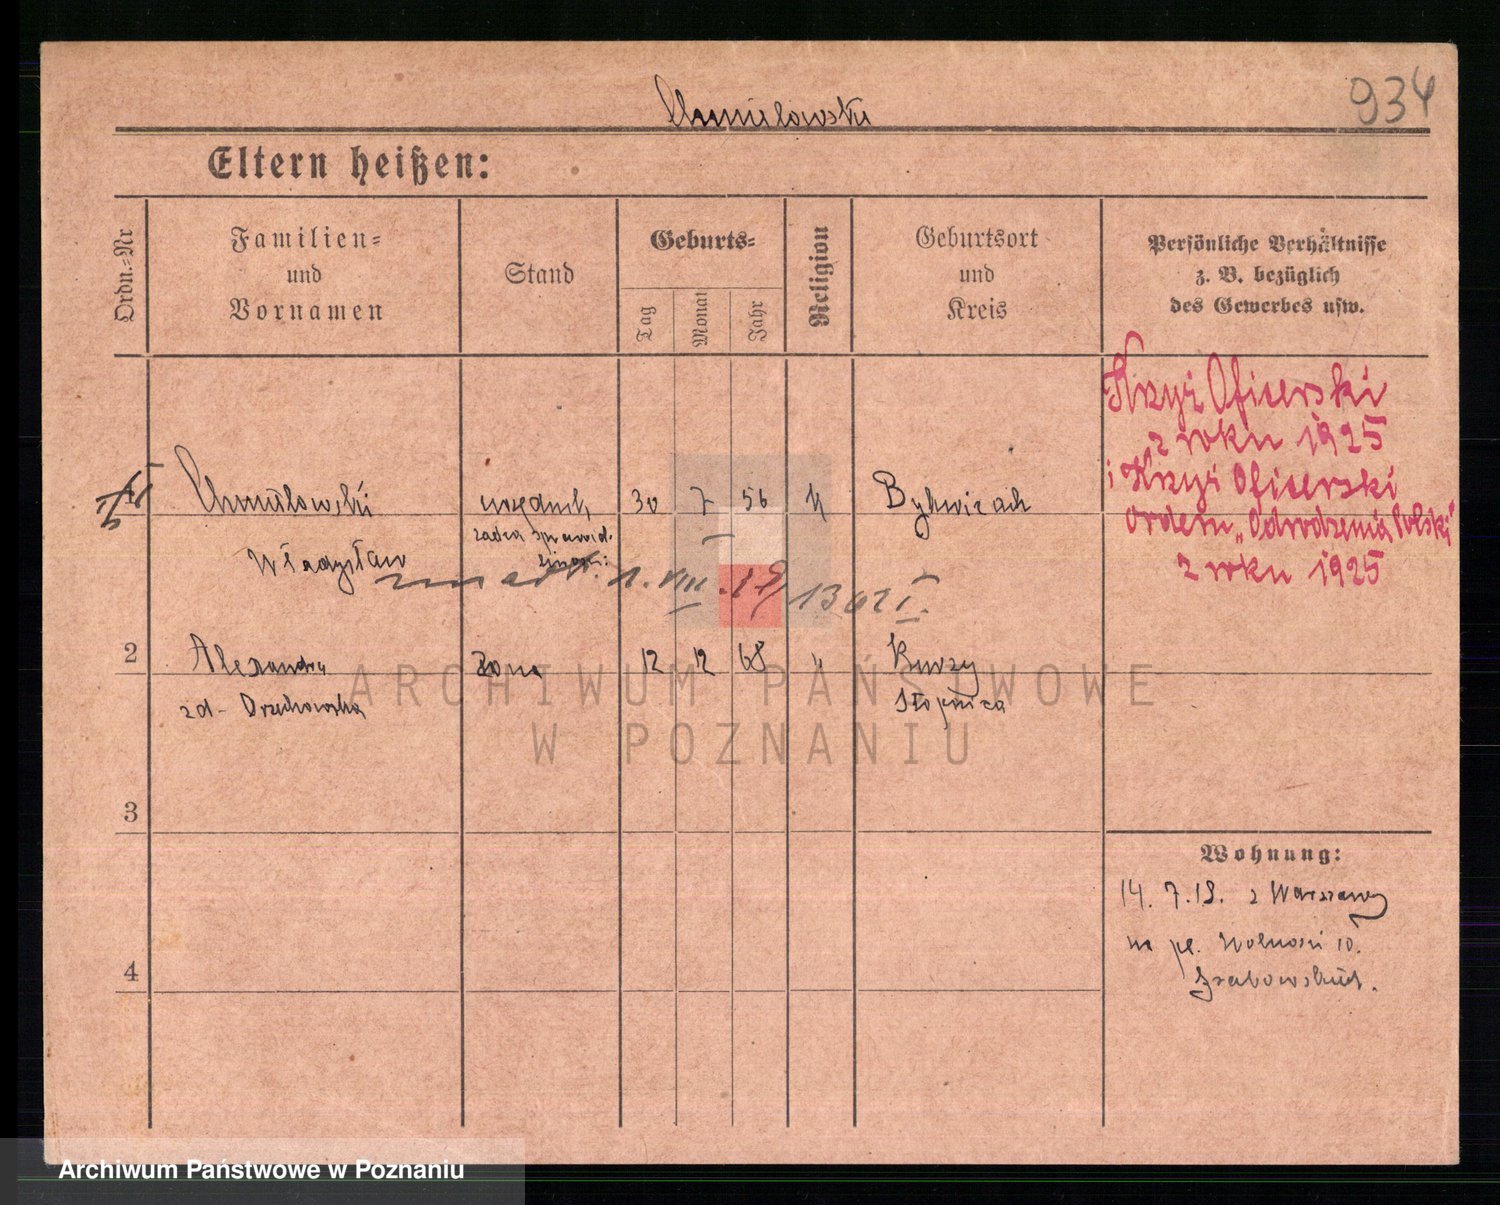 934
Chmielowski
Eltern heißen:
Ordn.=Nr
Familien=
und
Vornamen
Stand
Geburts=
Tag
Monat
Jahr
Religion
Geburtsort
und
Kreis
Persönliche Verhältnisse
z. B. bezüglich
des Gewerbes usw.
Krzyż Oficerski
z roku 1925
i Krzyż Oficerski
Orderu „Odrodzenia Polski"
z roku 1925
1 Chmielowski 30 7 56 k
Władysław
zmarł 1. VIII.
2 Alexandra żona 12 12 68 k
zd- Orzechowska
3
4
Wohnung:
14. 7. 19. z Warszawy
na pl. Wolności 10.
ARCHIWUM PAŃSTWOWE
W POZNANIU
Archiwum Państwowe w Poznaniu